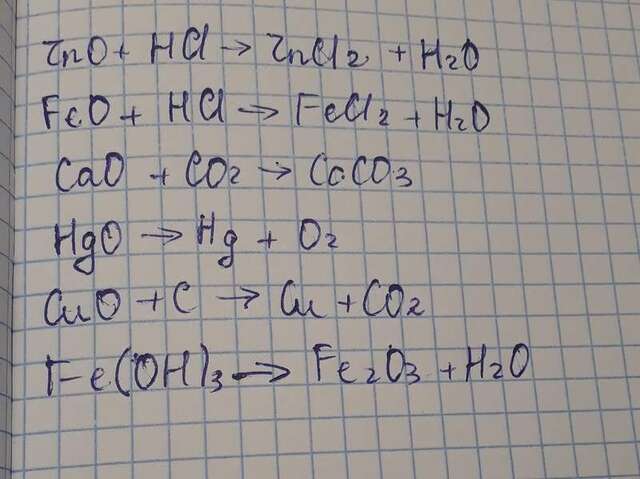 ZnO + HCl → ZnCl2 + H2O
FeO + HCl → FeCl2 + H2O
CaO + CO2 → CaCO3
HgO → Hg + O2
CuO + C → Cu + CO2
Fe(OH)3 → Fe2O3 + H2O